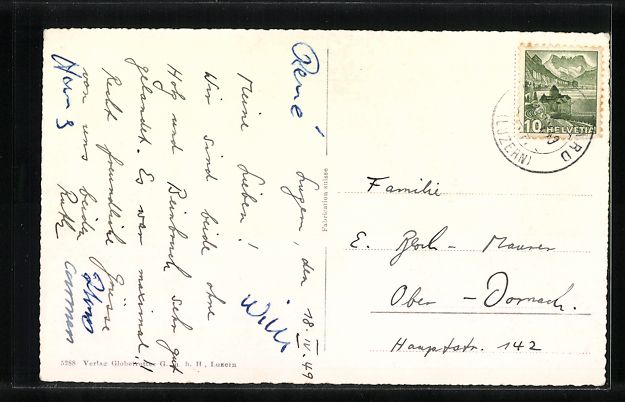 René
Luzern, den 18. IV. 49
Meine Lieben!
Wir sind beide ohne
Hals und Beinbruch sehr gut
gelandet. Es war maximal!
Recht freundliche Grüsse
von uns beiden
Ruth
Heinz
Willi
Carmen
Fabrication suisse
10 HELVETIA
(LUZERN)
Familie
E. Bloch - Maurer
Ober - Dornach.
Hauptstr. 142
5288 Verlag Globetrotter G. m. b. H., Luzern